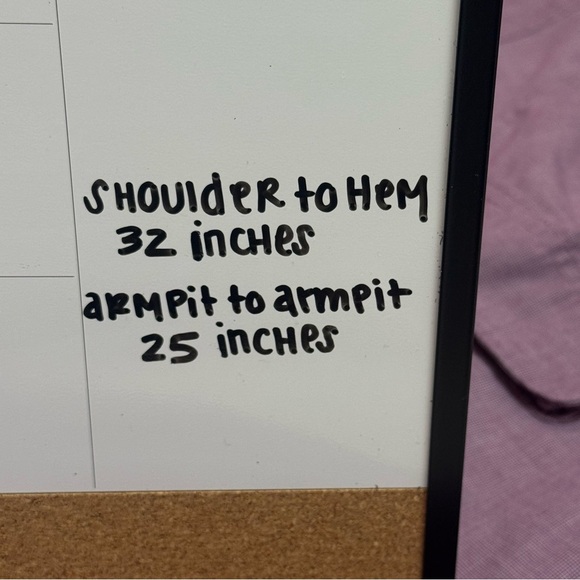 SHOUldeR to HeM
32 incHes
aRMPit to armpit
25 incHes